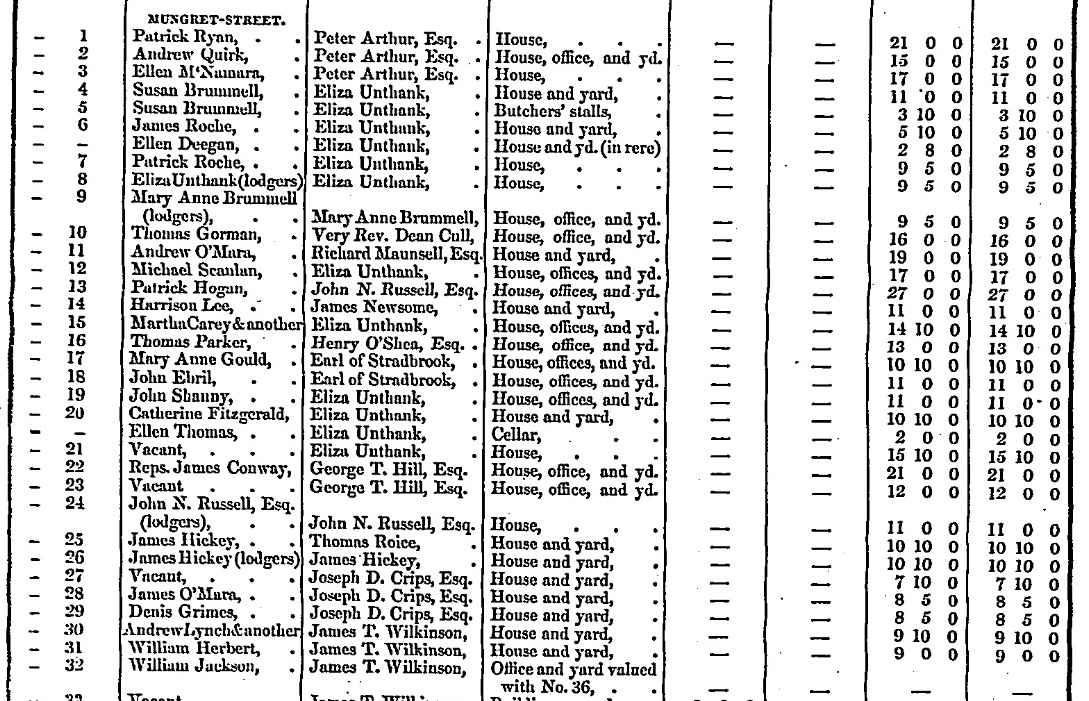 MUNGRET-STREET.
– 1 Patrick Ryan, . . Peter Arthur, Esq. . House, . . . — — 21 0 0 21 0 0
– 2 Andrew Quirk, . Peter Arthur, Esq. . House, office, and yd. — — 15 0 0 15 0 0
– 3 Ellen M'Namara, . Peter Arthur, Esq. . House, . . . — — 17 0 0 17 0 0
– 4 Susan Brummell, . Eliza Unthank, . House and yard, . — — 11 0 0 11 0 0
– 5 Susan Brummell, . Eliza Unthank, . Butchers' stalls, . — — 3 10 0 3 10 0
– 6 James Roche, . . Eliza Unthank, . House and yard, . — — 5 10 0 5 10 0
– – Ellen Deegan, . . Eliza Unthank, . House and yd. (in rere) — — 2 8 0 2 8 0
– 7 Patrick Roche, . . Eliza Unthank, . House, . . . — — 9 5 0 9 5 0
– 8 Eliza Unthank (lodgers) Eliza Unthank, . House, . . . — — 9 5 0 9 5 0
– 9 Mary Anne Brummell
(lodgers), . . Mary Anne Brummell, House, office, and yd. — — 9 5 0 9 5 0
– 10 Thomas Gorman, . Very Rev. Dean Cull, House, office, and yd. — — 16 0 0 16 0 0
– 11 Andrew O'Mara, . Richard Maunsell, Esq. House and yard, . — — 19 0 0 19 0 0
– 12 Michael Scanlan, . Eliza Unthank, . House, offices, and yd. — — 17 0 0 17 0 0
– 13 Patrick Hogan, . John N. Russell, Esq. House, offices, and yd. — — 27 0 0 27 0 0
– 14 Harrison Lee, . . James Newsome, . House and yard, . — — 11 0 0 11 0 0
– 15 Martha Carey & another Eliza Unthank, . House, offices, and yd. — — 14 10 0 14 10 0
– 16 Thomas Parker, . Henry O'Shea, Esq. . House, office, and yd. — — 13 0 0 13 0 0
– 17 Mary Anne Gould, . Earl of Stradbrook, . House, offices, and yd. — — 10 10 0 10 10 0
– 18 John Ebril, . . Earl of Stradbrook, . House, offices, and yd. — — 11 0 0 11 0 0
– 19 John Shanny, . . Eliza Unthank, . House, offices, and yd. — — 11 0 0 11 0 0
– 20 Catherine Fitzgerald, Eliza Unthank, . House and yard, . — — 10 10 0 10 10 0
– – Ellen Thomas, . . Eliza Unthank, . Cellar, . . . — — 2 0 0 2 0 0
– 21 Vacant, . . . Eliza Unthank, . House, . . . — — 15 10 0 15 10 0
– 22 Reps. James Conway, George T. Hill, Esq. House, office, and yd. — — 21 0 0 21 0 0
– 23 Vacant . . . George T. Hill, Esq. House, office, and yd. — — 12 0 0 12 0 0
– 24 John N. Russell, Esq.
(lodgers), . . John N. Russell, Esq. House, . . . — — 11 0 0 11 0 0
– 25 James Hickey, . . Thomas Roice, . House and yard, . — — 10 10 0 10 10 0
– 26 James Hickey (lodgers) James Hickey, . House and yard, . — — 10 10 0 10 10 0
– 27 Vacant, . . . Joseph D. Crips, Esq. House and yard, . — — 7 10 0 7 10 0
– 28 James O'Mara, . . Joseph D. Crips, Esq. House and yard, . — — 8 5 0 8 5 0
– 29 Denis Grimes, . . Joseph D. Crips, Esq. House and yard, . — — 8 5 0 8 5 0
– 30 Andrew Lynch & another James T. Wilkinson, House and yard, . — — 9 10 0 9 10 0
– 31 William Herbert, . James T. Wilkinson, House and yard, . — — 9 0 0 9 0 0
– 32 William Jackson, . James T. Wilkinson, Office and yard valued
with No. 36, . . — — — —